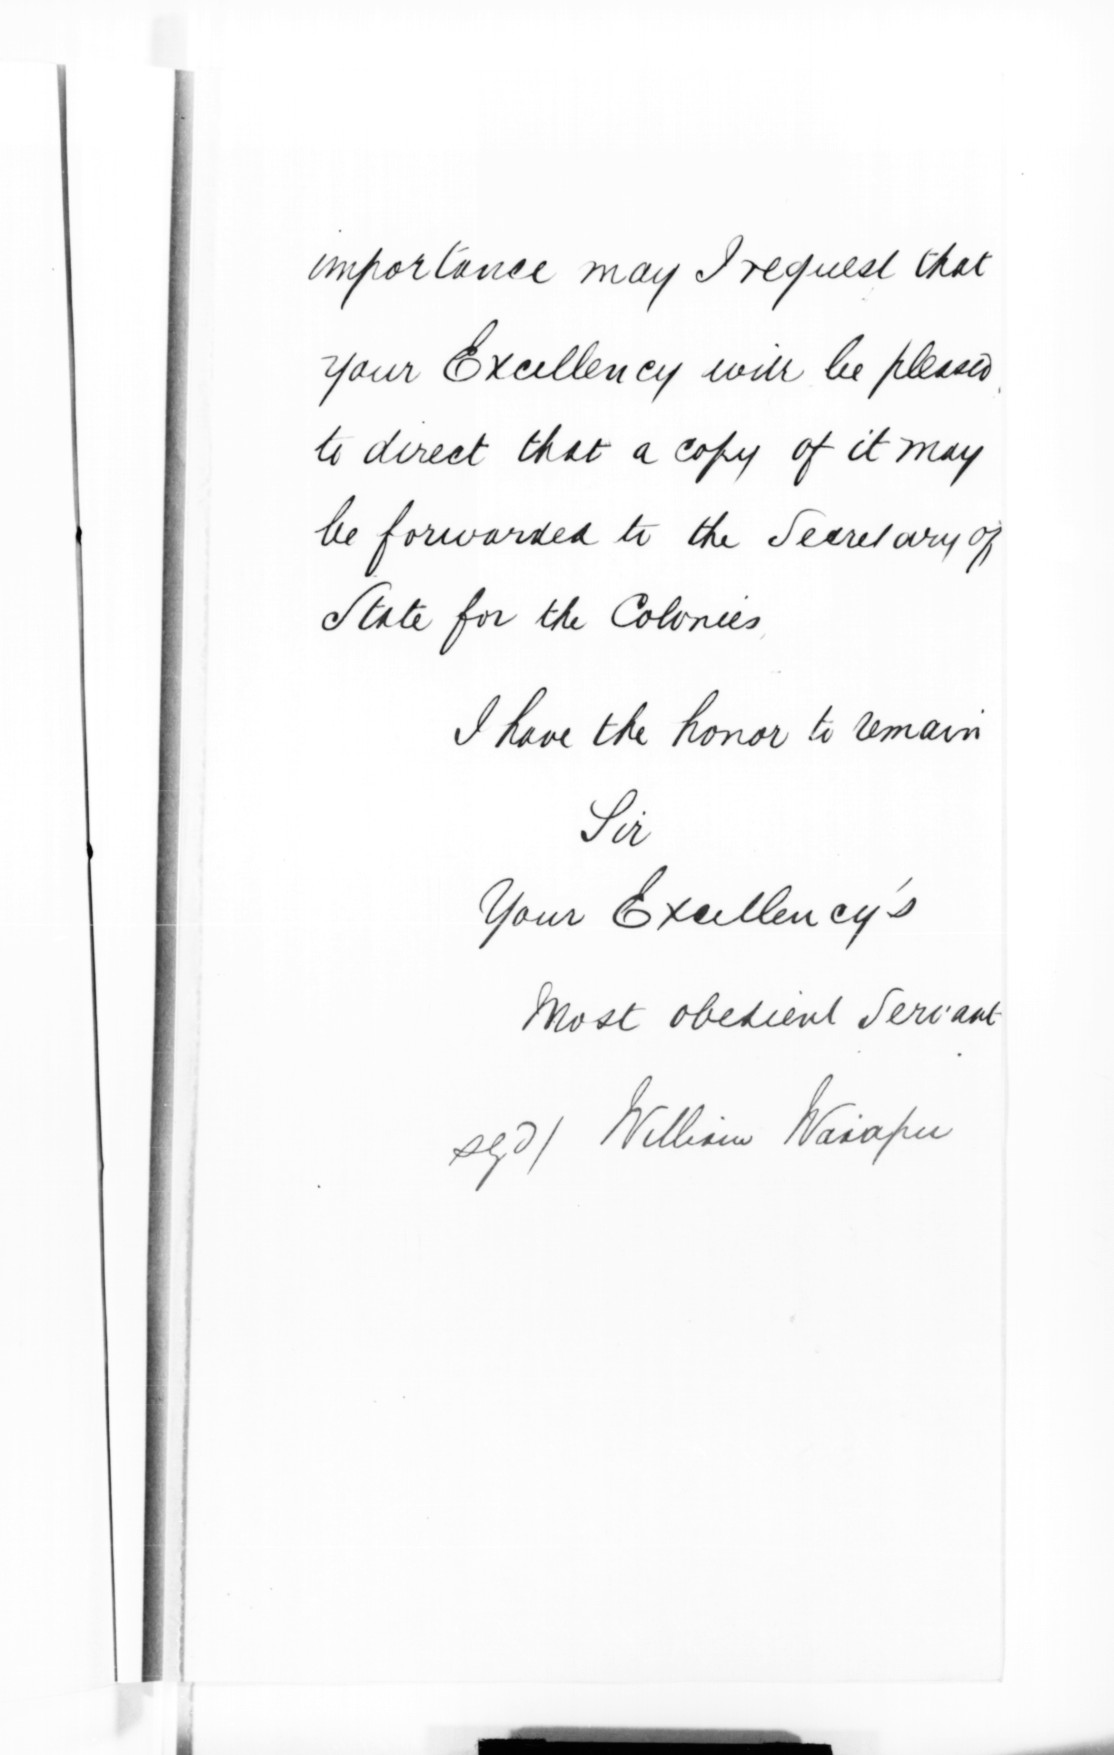 importance may I request that
your Excellency will be pleased
to direct that a copy of it may
be forwarded to the Secretary of
State for the Colonies
I have the honor to remain
Sir
Your Excellency's
Most obedient Servant
sgd/ William